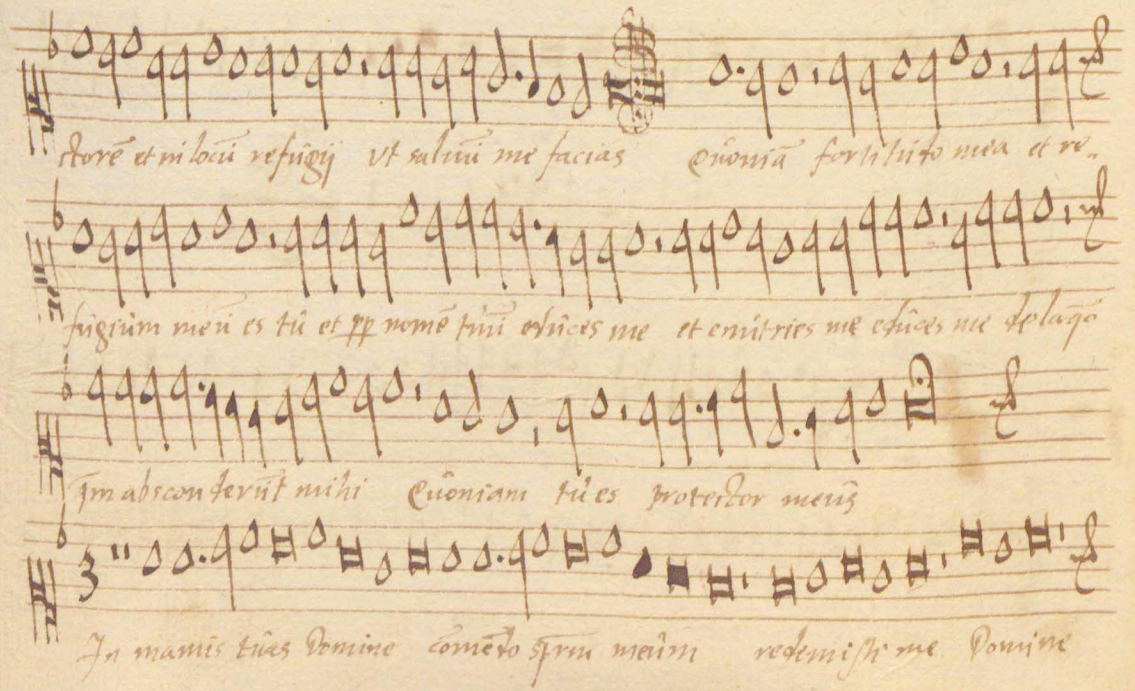 ctorē et in locū refugij vt saluū me facias Quoniā fortitudo mea et re-
fugium meū es tu et pp nomē tuū educes me et enutries me educes me de laq̄o
q̄m absconderūt mihi Quoniam tu es protector meus
3 In manus tuas Domine comēdo sp̄rm meum redemisti me Domine